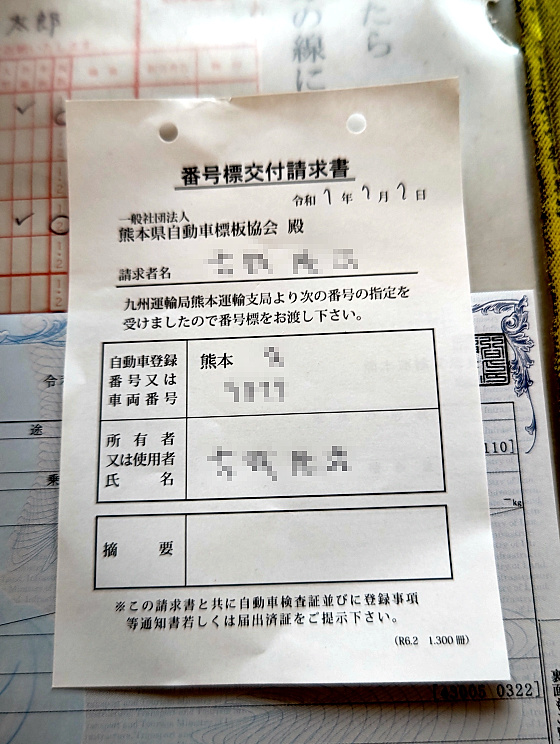 太郎
たら
の線に
番号標交付請求書
令和7年7月2日
一般社団法人
熊本県自動車標板協会 殿
請求者名
九州運輸局熊本運輸支局より次の番号の指定を
受けましたので番号標をお渡し下さい。
自動車登録
番号又は
車両番号
熊本
所有者
又は使用者
氏名
摘要
※この請求書と共に自動車検査証並びに登録事項
等通知書若しくは届出済証をご提示下さい。
(R6.2 1.300冊)
途
110]
-kg
0322]